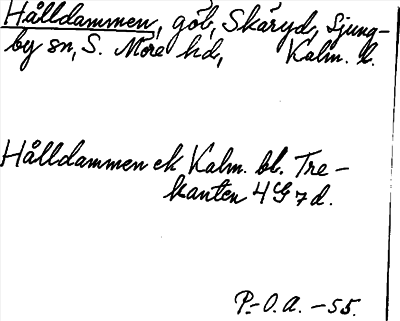 Hålldammen, göb, Skäryd, Ljung-
by sn, S. Möre hd, Kalm. l.
Hålldammen ek Kalm. bl. Tre-
kanten 4G7d.
P.-O.A. -55.